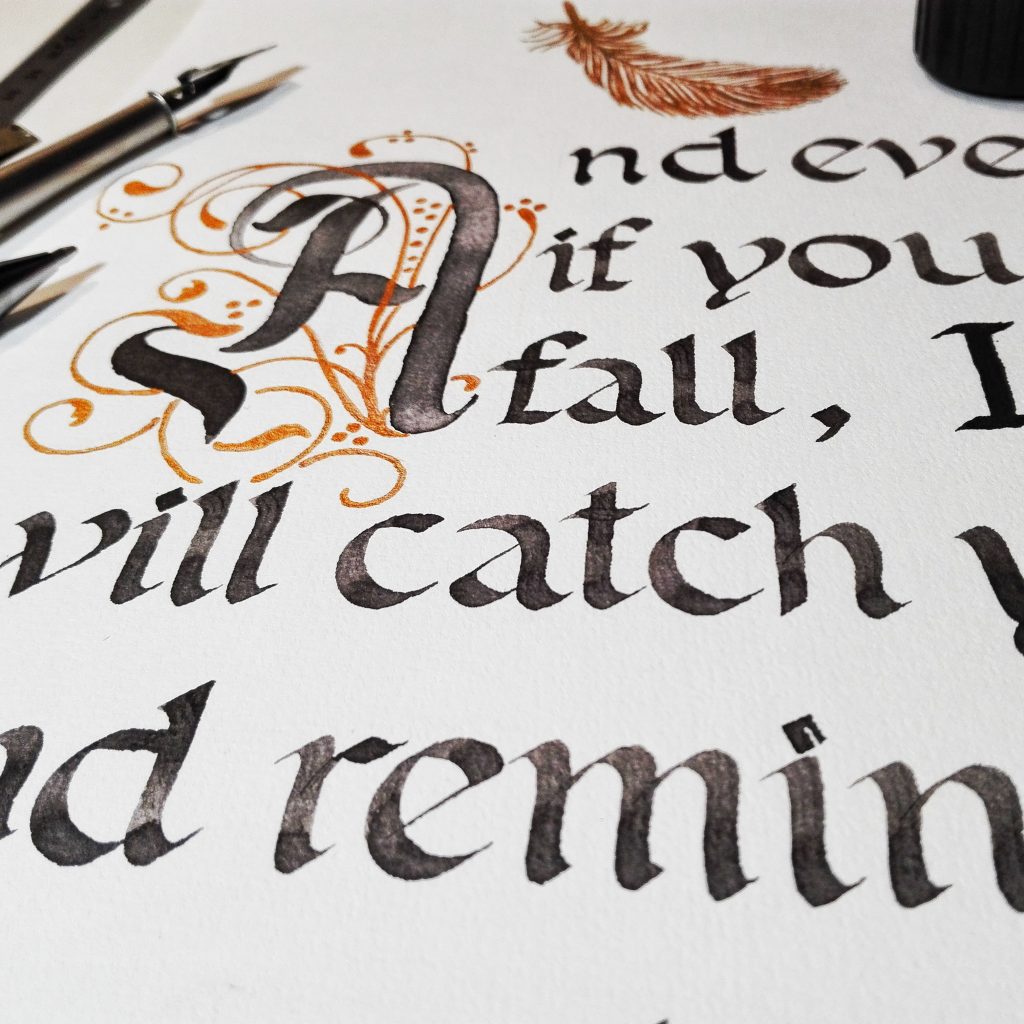 And eve
if you
fall, I
will catch y
nd remin